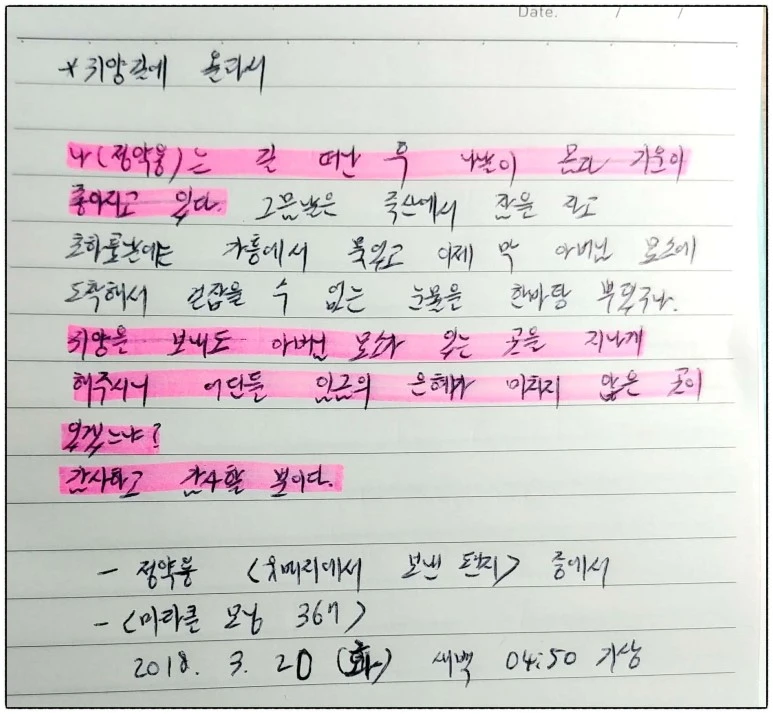 Date. / /
* 귀양길에 올라서
나(정약용)는 길 떠난 후 나날이 몸과 기운이
좋아지고 있다. 그믐날은 죽산에서 잠을 자고
초하룻날에는 가흥에서 묵었고 이제 막 아버님 묘소에
도착해서 걷잡을 수 없는 눈물을 한바탕 뿌렸구나.
귀양을 보내도 아버님 묘소가 있는 곳을 지나게
해주시니 어딘들 임금의 은혜가 미치지 않은 곳이
있겠느냐?
감사하고 감사할 뿐이다.
- 정약용 <유배지에서 보낸 편지> 중에서
- <미라클 모닝 367>
2018. 3. 20 (화) 새벽 04:50 기상